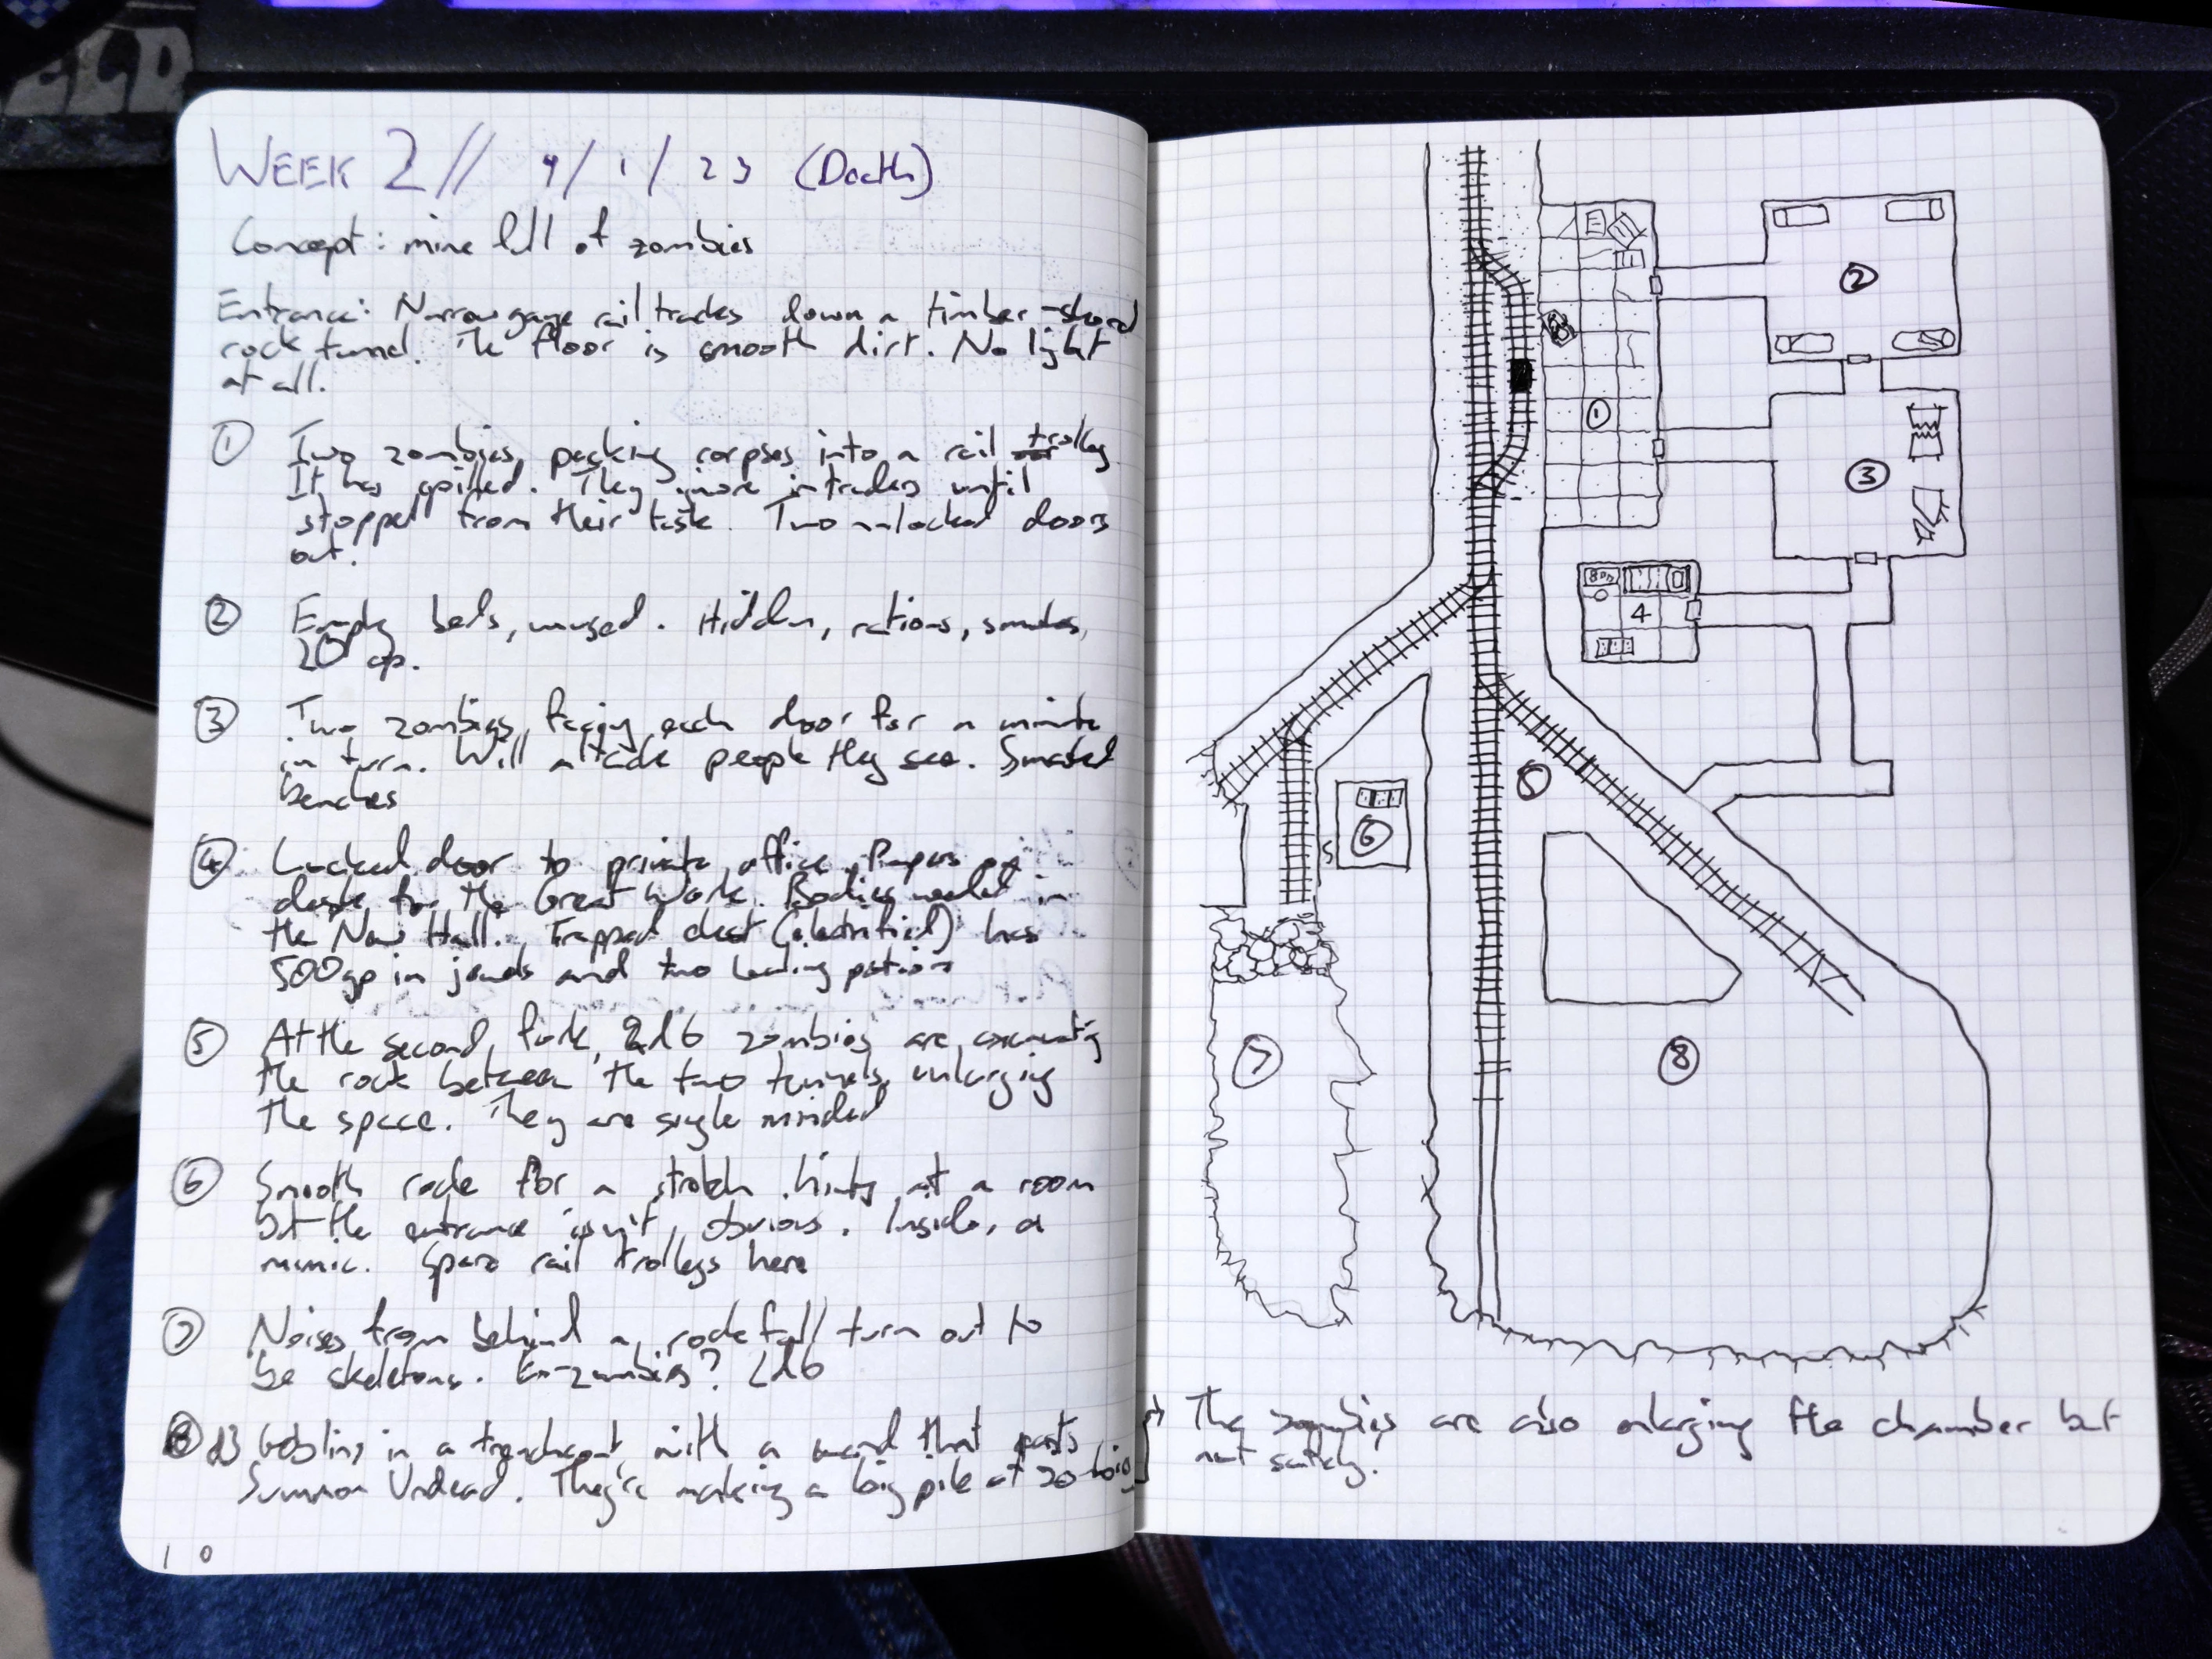 ELD
WEEK 2// 9/1/23 (Death)
Concept: mine full of zombies
Entrance: Narrow gauge rail tracks down a timber-shored
rock tunnel. The floor is smooth dirt. No light
at all.
① Two zombies packing corpses into a rail trolley
It has spilled. They ignore intruders until
stopped from their task. Two unlocked doors
out.
② Empty beds, unused. Hidden, rations, smokes,
20 cp.
③ Two zombies, facing each door for a minute
in turn. Will attack people they see. Smashed
benches
④ Locked door to private office. Papers on
desk for the Great Work. Bodies needed in
the New Hall. Trapped chest (electrified) has
500gp in jewels and two healing potions
⑤ At the second fork, 2d6 zombies are excavating
the rock between the two tunnels, enlarging
the space. They are single minded
⑥ Smooth rock for a stretch hints at a room
but the entrance isn't obvious. Inside, a
mimic. Spare rail trolleys here
⑦ Noises from behind a rockfall turn out to
be skeletons. Ex-zombies? 2d6
⑧ d3 Goblins in a trenchcoat with a wand that casts
Summon Undead. They're making a big pile of zombies
10
① ② ③ 4 5 ⑥ S ⑦ ⑧
The zombies are also enlarging the chamber but
not safely.